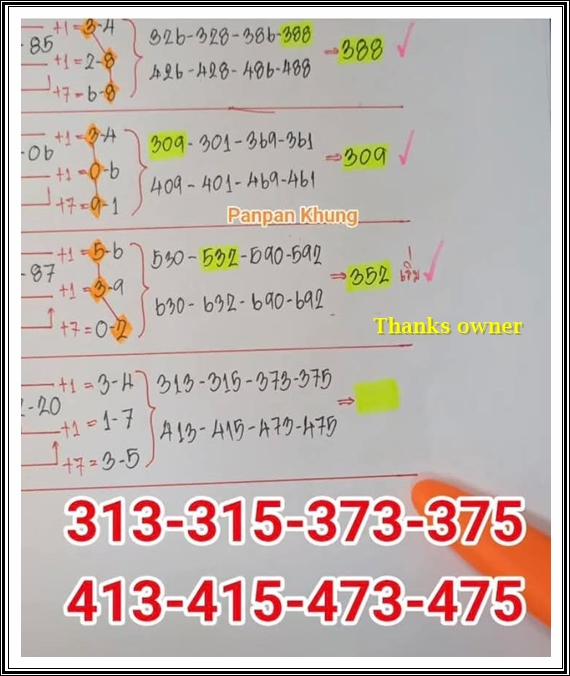 +1=3-4
-85
+1=2-8
+7=6-8
326-328-386-388
426-428-486-488
⇒388
+1=3-4
-06
+1=0-6
+7=9-1
309-301-369-361
409-401-469-461
⇒309
Panpan Khung
+1=5-6
-87
+1=3-9
+7=0-2
530-532-590-592
630-632-690-692
⇒352
Thanks owner
+1=3-4
-20
+1=1-7
+7=3-5
313-315-373-375
413-415-473-475
⇒
313-315-373-375
413-415-473-475